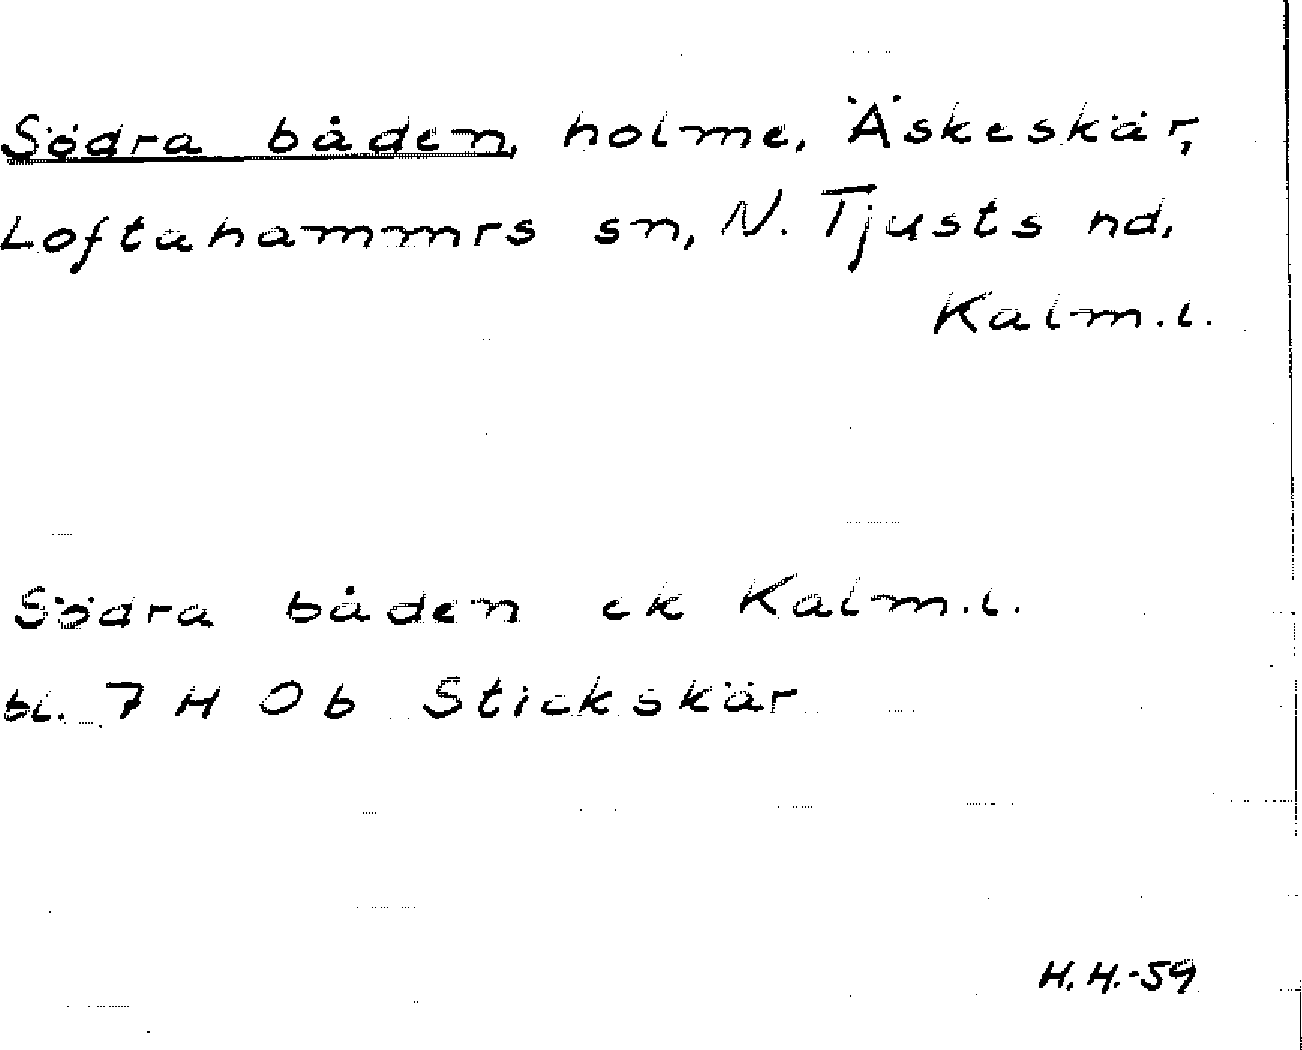 Södra båden, holme, Äskeskär,
Loftahammrs sn, N. Tjusts hd,
Kalm.l.
Södra båden ek Kalm.l.
bl. 7 H Ob Stickskär
H.H.-59